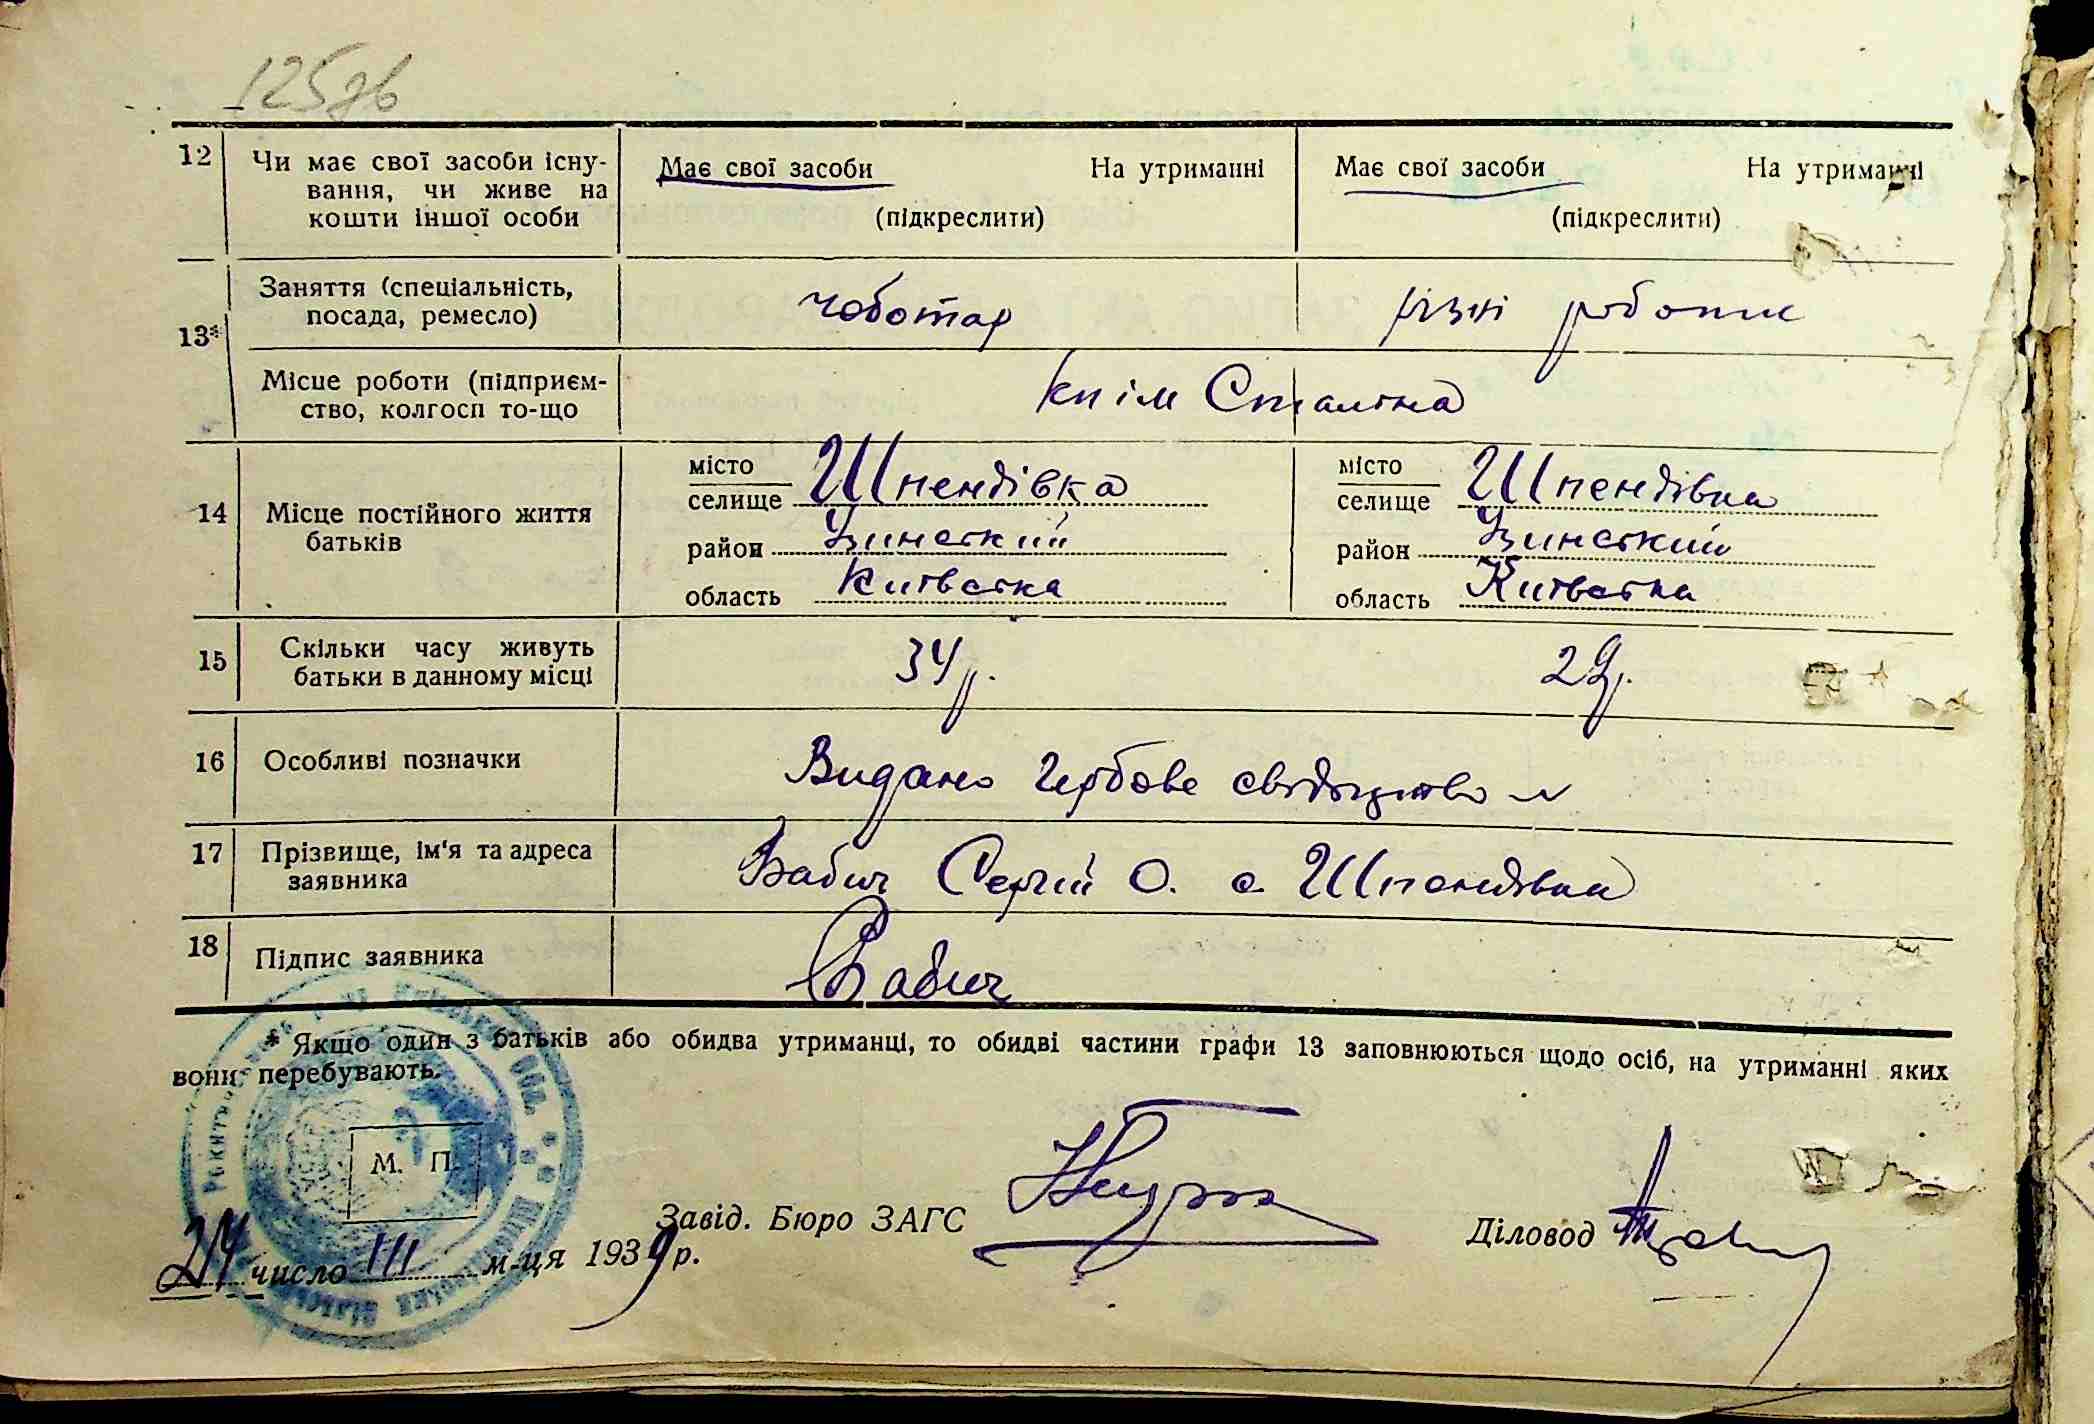 125зв
12 Чи має свої засоби існу- Має свої засоби На утриманні Має свої засоби На утриманні
вання, чи живе на
кошти іншої особи (підкреслити) (підкреслити)
Заняття (спеціальність, чоботар різні роботи
13* посада, ремесло)
Місце роботи (підприєм- кп ім Сталіна
ство, колгосп то-що
місто Шпендівка місто Шпендівка
селище селище
14 Місце постійного життя
батьків район Узинський район Узинський
область Київська область Київська
15 Скільки часу живуть 34 р. 29 р.
батьки в данному місці
16 Особливі позначки Видано Гербове свідоцтво
17 Прізвище, ім'я та адреса Бабич Сергій О. с Шпендівка
заявника
18 Підпис заявника Бабич
* Якщо один з батьків або обидва утриманці, то обидві частини графи 13 заповнюються щодо осіб, на утриманні яких
вони перебувають.
М. П.
Завід. Бюро ЗАГС Діловод
24 число III м-ця 1939 р.